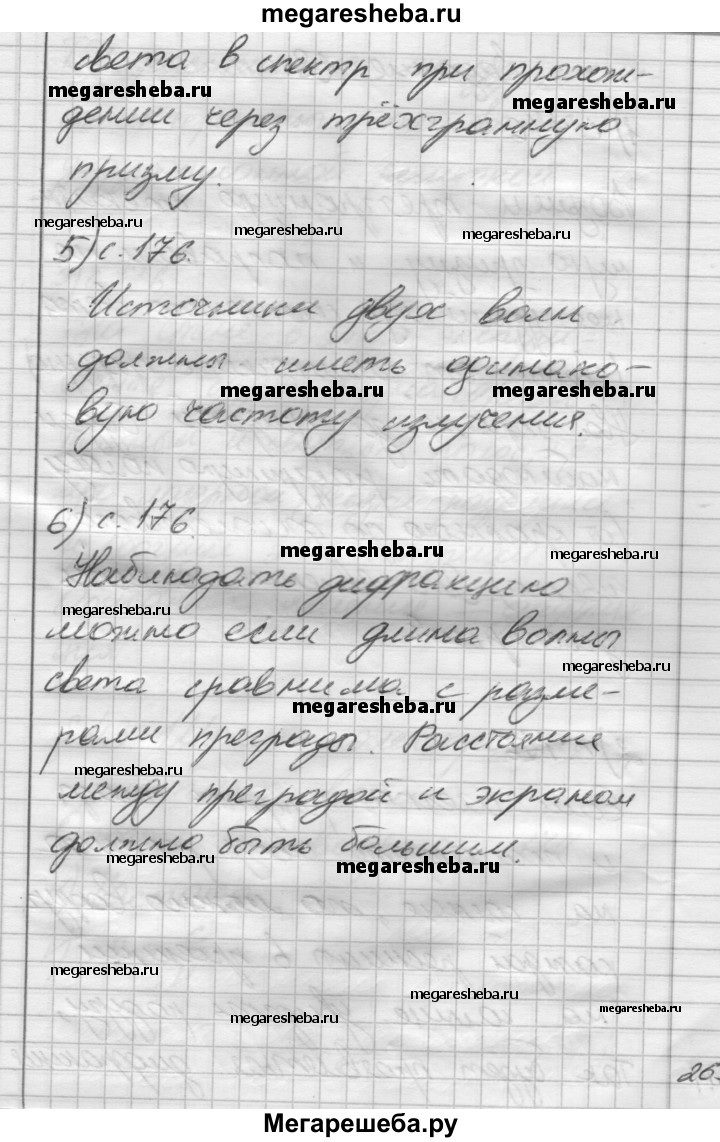 megaresheba.ru
света в спектр при прохож-
megaresheba.ru megaresheba.ru
дении через трёхгранную
призму.
megaresheba.ru megaresheba.ru megaresheba.ru
5) с. 176.
Источники двух волн
должны иметь одинако-
megaresheba.ru megaresheba.ru
вую частоту излучения.
6) с. 176.
megaresheba.ru megaresheba.ru
Наблюдать дифракцию
megaresheba.ru
можно если длина волны
megaresheba.ru
света сравнима с разме-
megaresheba.ru
рами преграды. Расстояние
megaresheba.ru
между преградой и экраном
должно быть большим.
megaresheba.ru megaresheba.ru
megaresheba.ru
megaresheba.ru megaresheba.ru megaresheba.ru
26
Мегарешеба.ру